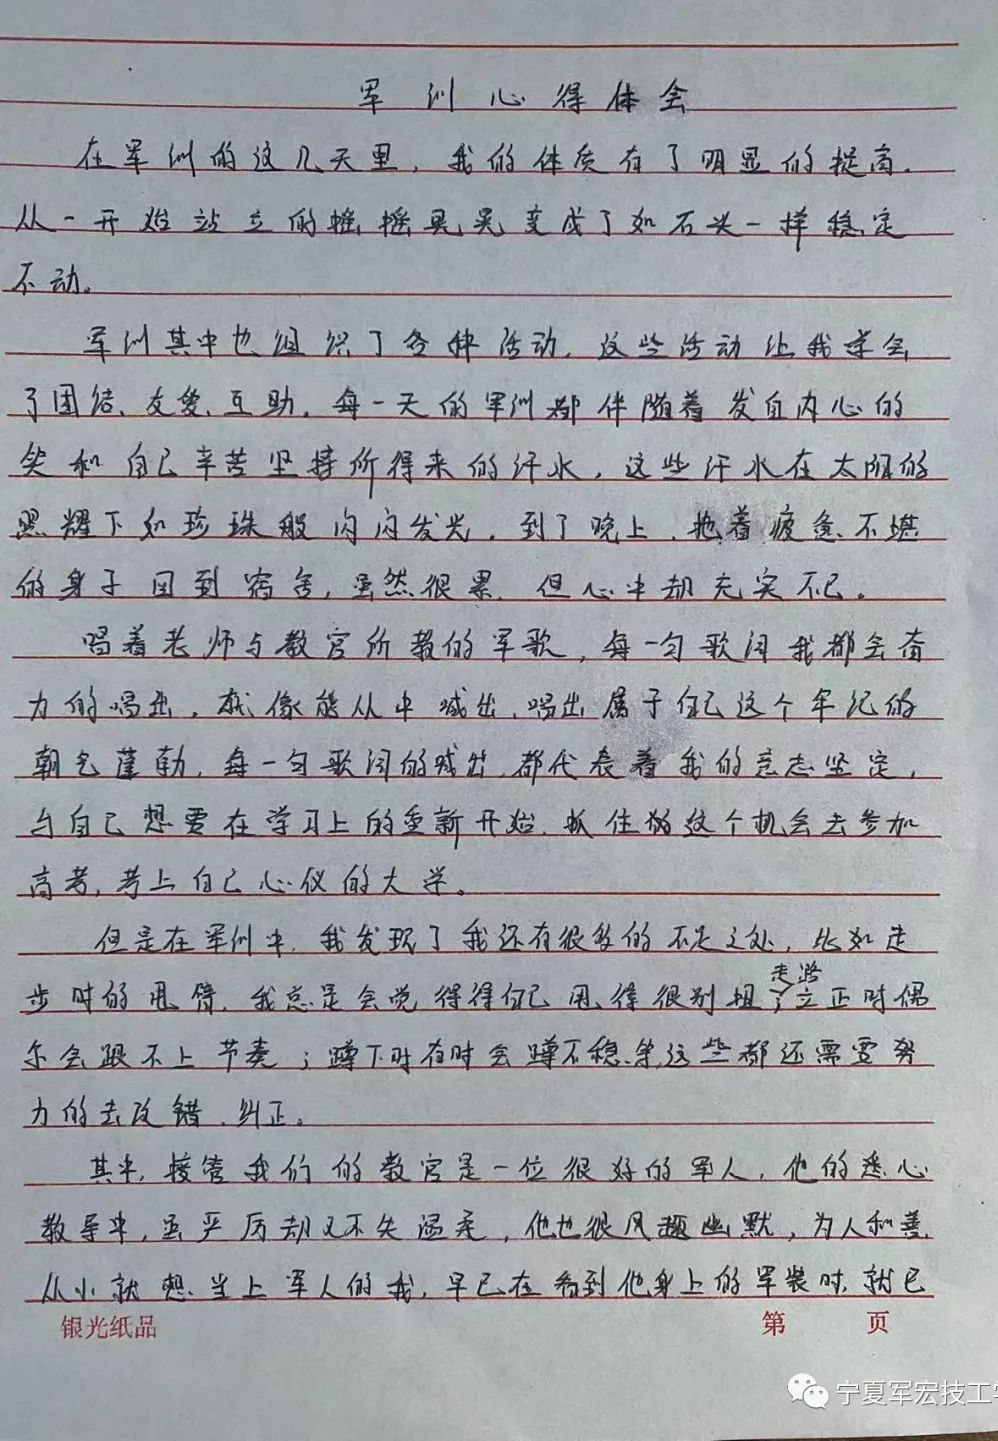 军训心得体会
在军训的这几天里，我的体质有了明显的提高。
从一开始站立的摇摇晃晃变成了如石头一样稳定
不动。
军训其中也组织了各种活动，这些活动让我学会
了团结、友爱、互助。每一天的军训都伴随着发自内心的
笑和自己辛苦坚持所得来的汗水，这些汗水在太阳的
照耀下如珍珠般闪闪发光。到了晚上，拖着疲惫不堪
的身子回到宿舍，虽然很累，但心中却充实不已。
唱着老师与教官所教的军歌，每一句歌词我都会奋
力的唱出。就像能从中喊出、唱出属于自己这个年纪的
朝气蓬勃，每一句歌词的喊出，都代表着我的意志坚定，
与自己想要在学习上的重新开始，抓住这个机会去参加
高考，考上自己心仪的大学。
但是在军训中，我发现了我还有很多的不足之处，比如走
步时的甩臂，我总是会觉得得自己甩臂很别扭；走路立正时偶
尔会跟不上节奏；蹲下时有时会蹲不稳等，这些都还需要努
力的去改错、纠正。
其中，接管我们的教官是一位很好的军人，他的悉心
教导中，虽严厉却又不失温柔，他也很风趣幽默，为人和善，
从小就想当上军人的我，早已在看到他身上的军装时，就已
银光纸品 第 页
宁夏军宏技工学